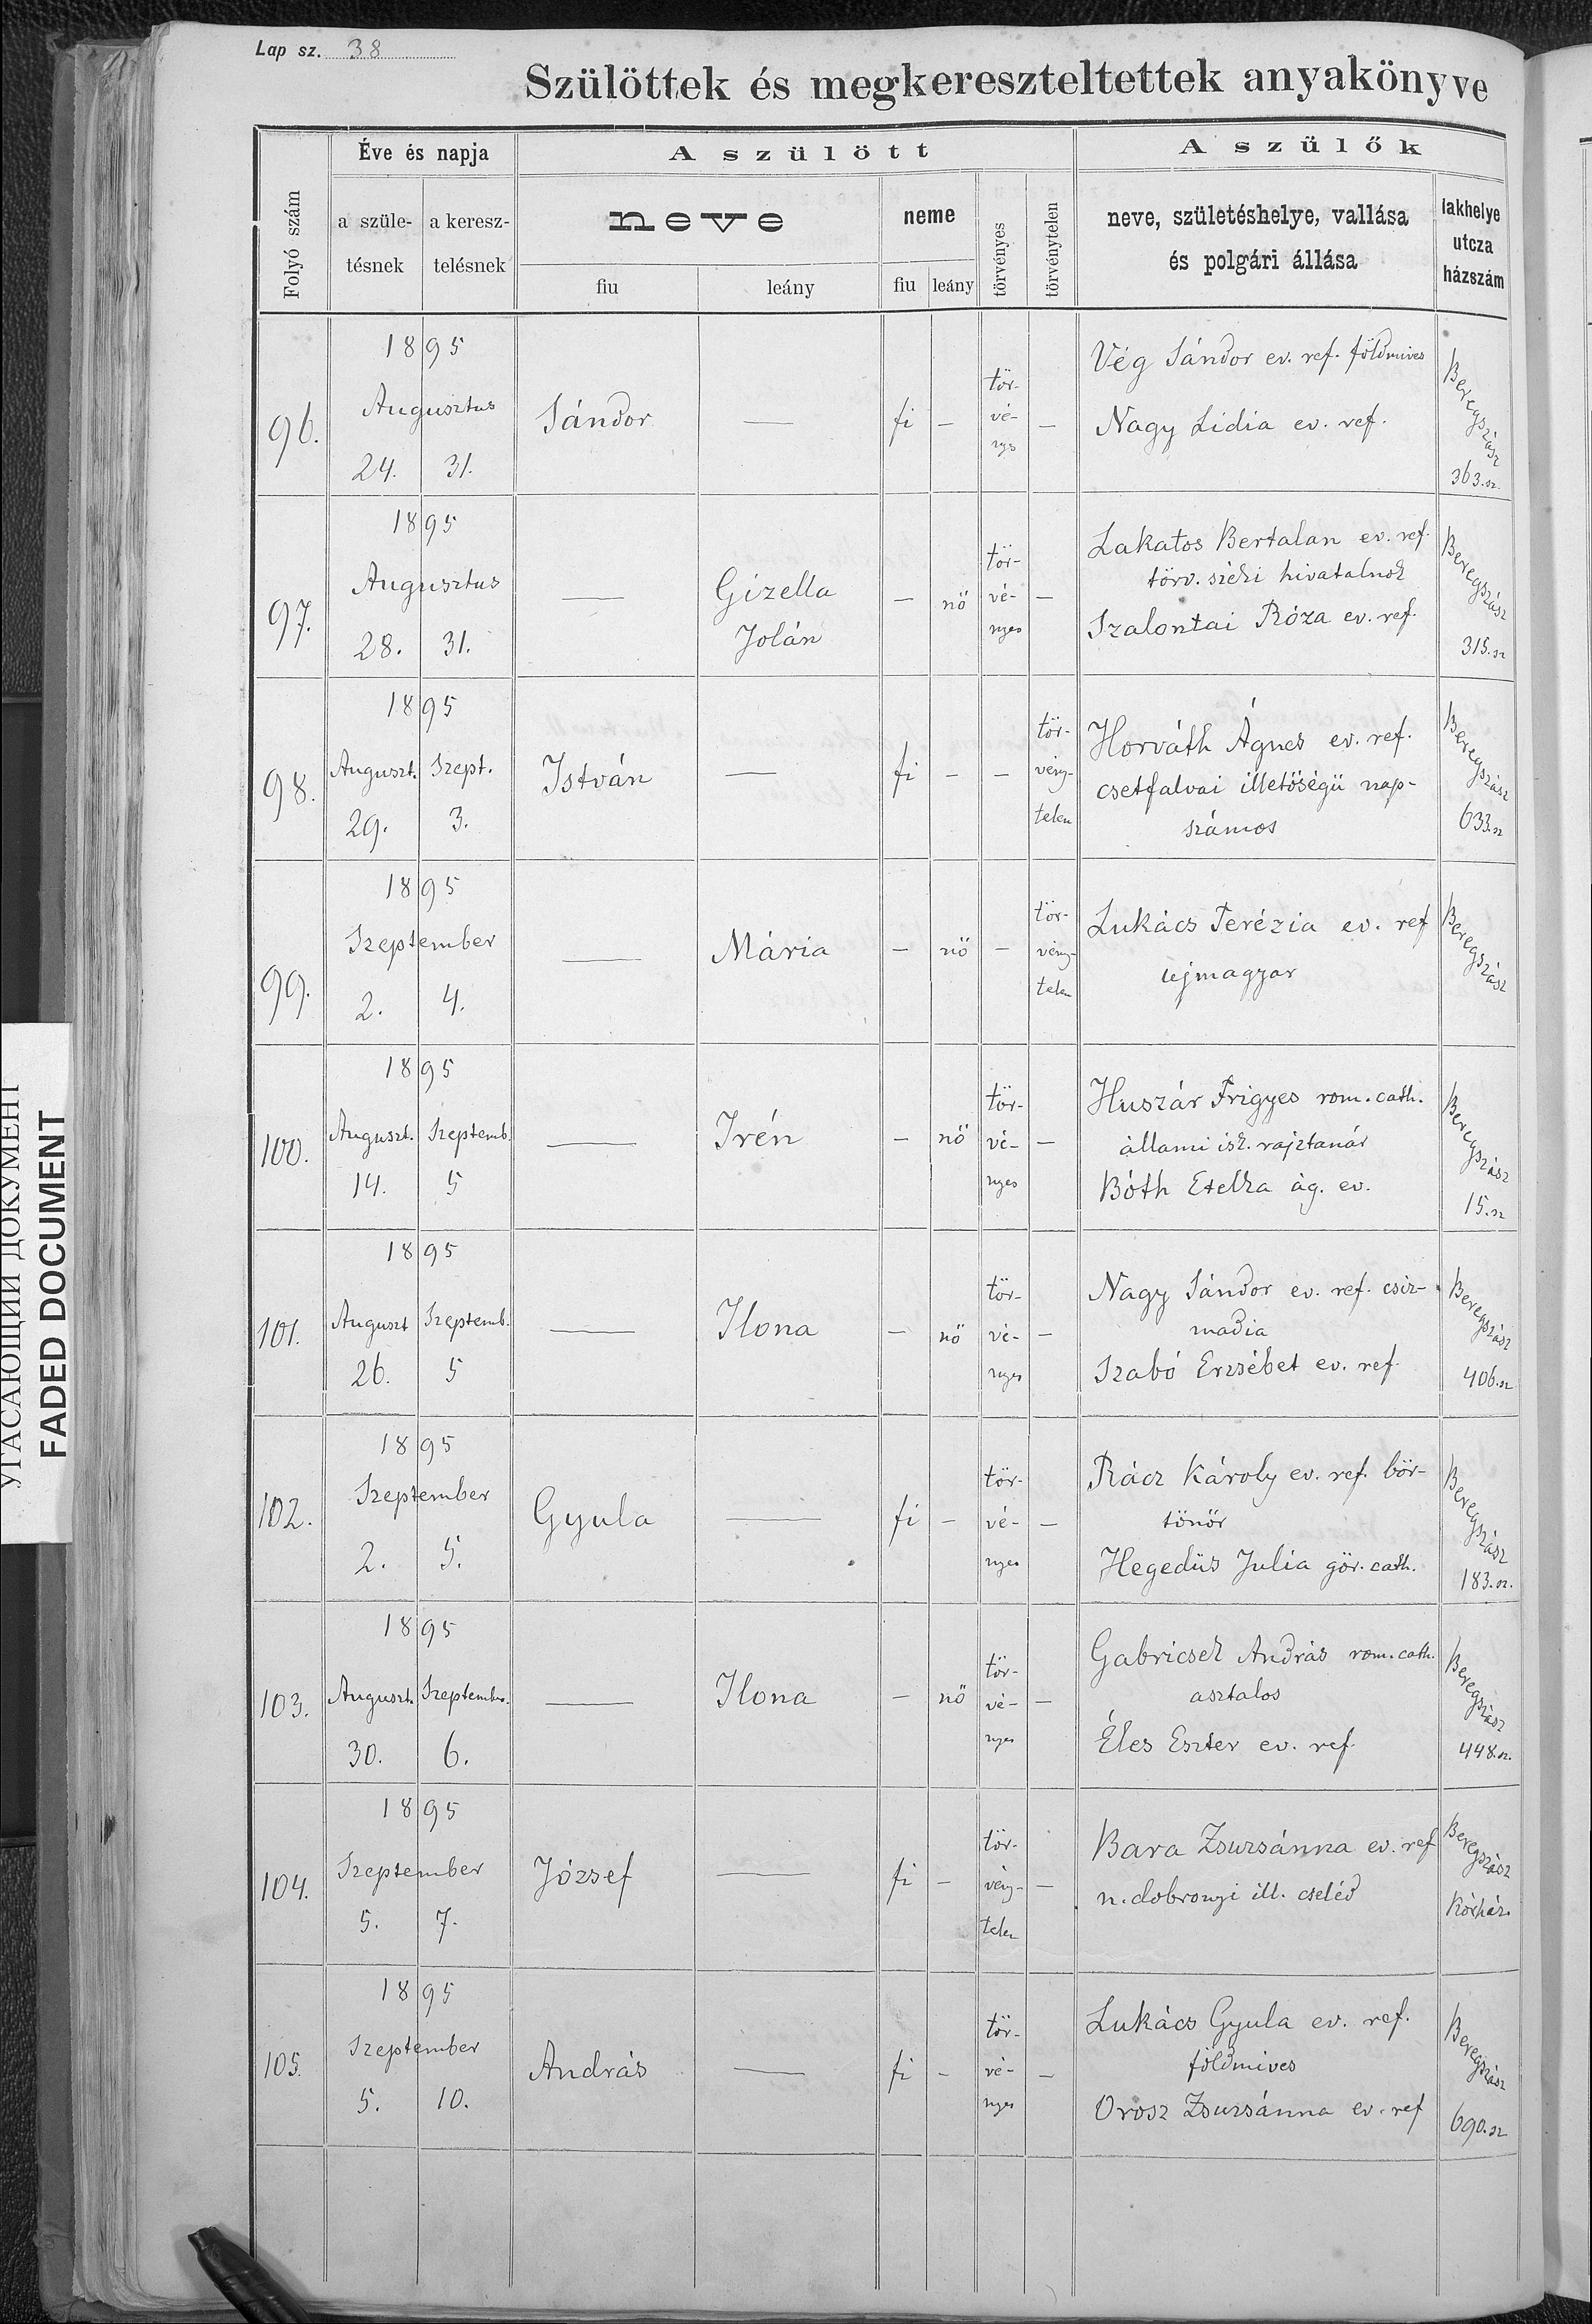 Lap sz. 38
Szülöttek és megkereszteltettek anyakönyve
Folyó szám
Éve és napja
a szüle-
tésnek
a keresz-
telésnek
A szülött
neve
fiu
leány
neme
fiu
leány
törvényes
törvénytelen
A szülők
neve, születéshelye, vallása
és polgári állása
lakhelye
utcza
házszám
96.
1895
Augusztus
24. 31.
Sándor
—
fi
—
tör-
vé-
nys
—
Vég Sándor ev. ref. földmives
Nagy Lidia ev. ref.
Beregszász
363. sz.
97.
1895
Augusztus
28. 31.
—
Gizella
Jolán
—
nö
tör-
vé-
nyes
—
Lakatos Bertalan ev. ref.
törv. széki hivatalnok
Szalontai Róza ev. ref.
Beregszász
315. sz
98.
1895
Auguszt. Szept.
29. 3.
István
—
fi
—
—
tör-
vény-
telen
Horváth Ágnes ev. ref.
csetfalvai illetőségü nap-
számos
Beregszász
633. sz
99.
1895
Szeptember
2. 4.
—
Mária
—
nö
—
tör-
vény-
telen
Lukács Terézia ev. ref
ujmagyar
Beregszász
100.
1895
Auguszt. Szeptemb.
14. 5
—
Irén
—
nö
tör-
vé-
nyes
—
Huszár Frigyes rom. cath.
állami isk. rajztanár
Bóth Etelka ág. ev.
Beregszász
15. sz
101.
1895
Auguszt Szeptemb.
26. 5
—
Ilona
—
nö
tör-
vé-
nyes
—
Nagy Sándor ev. ref. csiz-
madia
Szabó Erzsébet ev. ref.
Beregszász
406. sz
102.
1895
Szeptember
2. 5.
Gyula
—
fi
—
tör-
vé-
nyes
—
Rácz Károly ev. ref. bör-
tönör
Hegedüs Julia gör. cath.
Beregszász
183. sz.
103.
1895
Auguszt. Szeptember.
30. 6.
—
Ilona
—
nö
tör-
vé-
nyes
—
Gabricsek András rom. cath.
asztalos
Éles Eszter ev. ref.
Beregszász
448. sz.
104.
1895
Szeptember
5. 7.
József
—
fi
—
tör-
vény-
telen
—
Bara Zsuzsánna ev. ref
n. dobronyi ill. cseléd
Beregszász
Kórház
105.
1895
Szeptember
5. 10.
András
—
fi
—
tör-
vé-
nyes
—
Lukács Gyula ev. ref.
földmives
Orosz Zsuzsánna ev. ref
Beregszász
690. sz
УГАСАЮЩИЙ ДОКУМЕНТ
FADED DOCUMENT